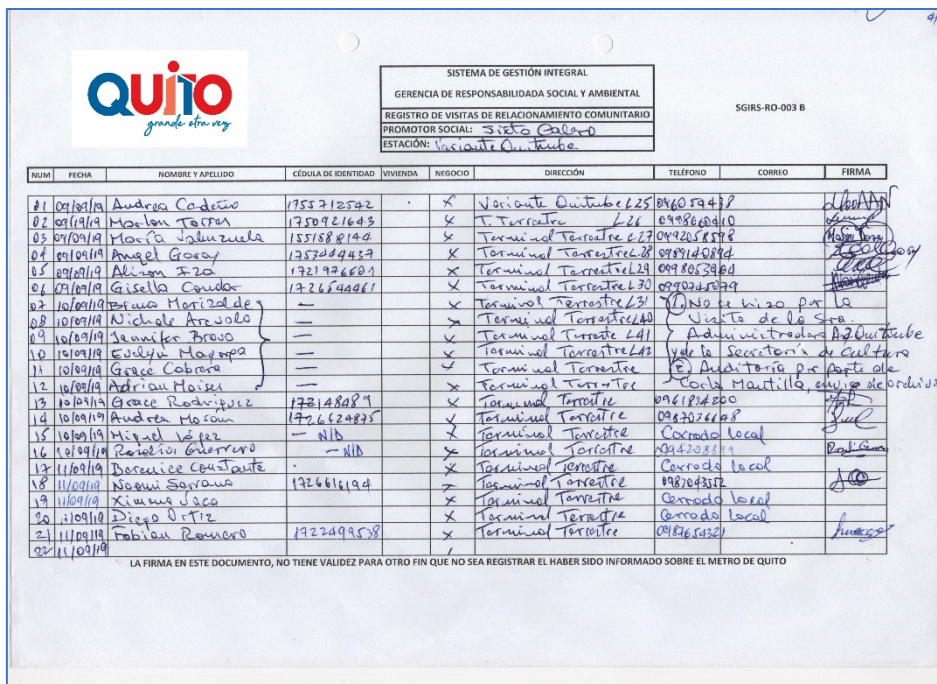 4/
QUITO
grande otra vez
SISTEMA DE GESTIÓN INTEGRAL
GERENCIA DE RESPONSABILIDADA SOCIAL Y AMBIENTAL
REGISTRO DE VISITAS DE RELACIONAMIENTO COMUNITARIO
PROMOTOR SOCIAL: Sixto Calero
ESTACIÓN: Variante Quitumbe
SGIRS-RO-003 B
NUM FECHA NOMBRE Y APELLIDO CÉDULA DE IDENTIDAD VIVIENDA NEGOCIO DIRECCIÓN TELÉFONO CORREO FIRMA
01 09/09/19 Andrea Cadeño 1755712542 X Variante Quitumbe L25
02 09/19/19 Marlon Torres 1750921643 X T. Terrestre L26
03 09/09/19 María Valenzuela X Terminal Terrestre L27
04 09/09/19 Angel Garay X Terminal Terrestre L28 0989140894
05 09/09/19 Alison Iza X Terminal Terrestre L29 0998053964
06 09/09/19 Gisella Condor 1726544461 X Terminal Terrestre L30 0990245079
07 10/09/19 Marizalde — X Terminal Terrestre L31 (1). No se hizo por la
08 10/09/19 Nichole Arevalo — X Terminal Terrestre L40 Visita de la Sra.
09 10/09/19 Jennifer Bravo — X Terminal Terreste L41 Administradora AZ Quitumbe
10 10/09/19 Evelyn — X Terminal Terrestre L42 y de la Secretoría de Cultura
11 10/09/19 Grace Cabrera — X Terminal Terrestre (2) Auditoría por parte de
12 10/09/19 Adrian Moises — X Terminal Terrestre Carla Mantilla, envio de archivos
13 10/09/19 Grace Rodriguez 173148489 X Terminal Terrestre 0961834200
14 10/09/19 Andrea Morán 1726624875 X Terminal Terrestre 0987036648
15 10/09/19 Miguel López — N/D X Terminal Terrestre Cerrado local
16 10/09/19 Rosalia Guerrero — N/D X Terminal Terrestre
17 11/09/19 Berenice Constante X Terminal Terrestre Cerrado local
18 11/09/19 Noemi Serrano 1726616194 X Terminal Terrestre 0987043552
19 11/09/19 Ximena Jaco X Terminal Terrestre Cerrado local
20 11/09/19 Diego Ortiz X Terminal Terrestre Cerrado local
21 11/09/19 Fabian Romero 1722499538 X Terminal Terrestre 0987654321
22 11/09/19
LA FIRMA EN ESTE DOCUMENTO, NO TIENE VALIDEZ PARA OTRO FIN QUE NO SEA REGISTRAR EL HABER SIDO INFORMADO SOBRE EL METRO DE QUITO